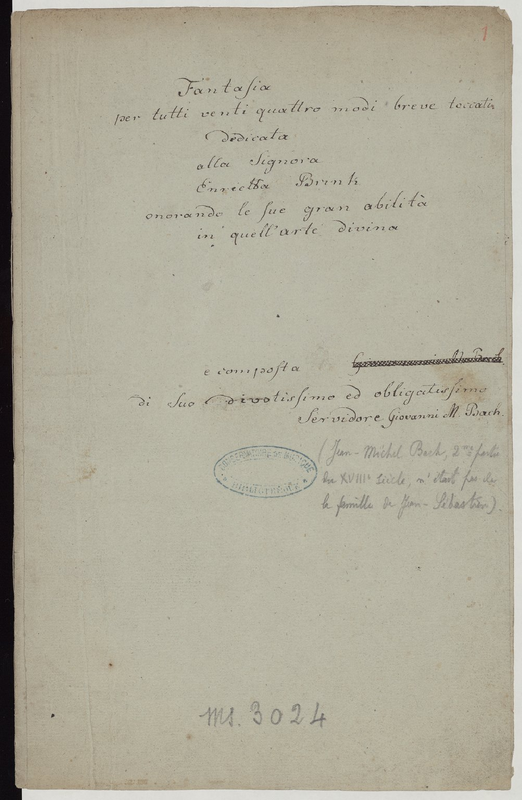 1
Fantasia
per tutti venti quattro modi breve toccati
Dedicata
alla Signora
Enrietta Brink
onorando le sue gran abilità
in quell'arte divina
e composta
di Suo divotissimo ed obligatissimo
Servidore Giovanni M. Bach.
(Jean-Michel Bach, 2me partie
du XVIIIe siècle, n'était pas de
la famille de Jean-Sébastien).
CONSERVATOIRE DE MUSIQUE
BIBLIOTHÈQUE
ms. 3024